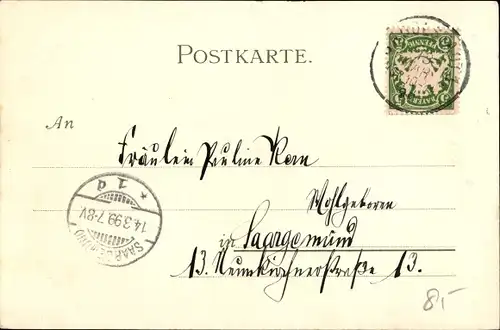 POSTKARTE.
BAYERN
An
Fräulein Pauline Korn
Wohlgeboren
in Saargemünd
13. Neunkircherstraße 13.
* 1 d
14.3.99.7-8V
SAARGEMÜND
8.-